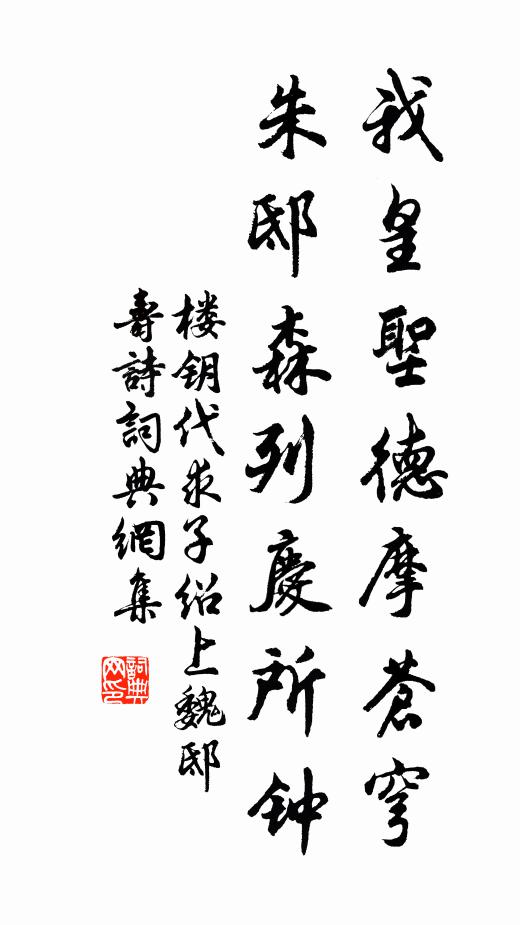 我皇聖德摩蒼穹
朱邸森列慶所钟
楼钥代求子绍上魏邸
壽詩詞典網集